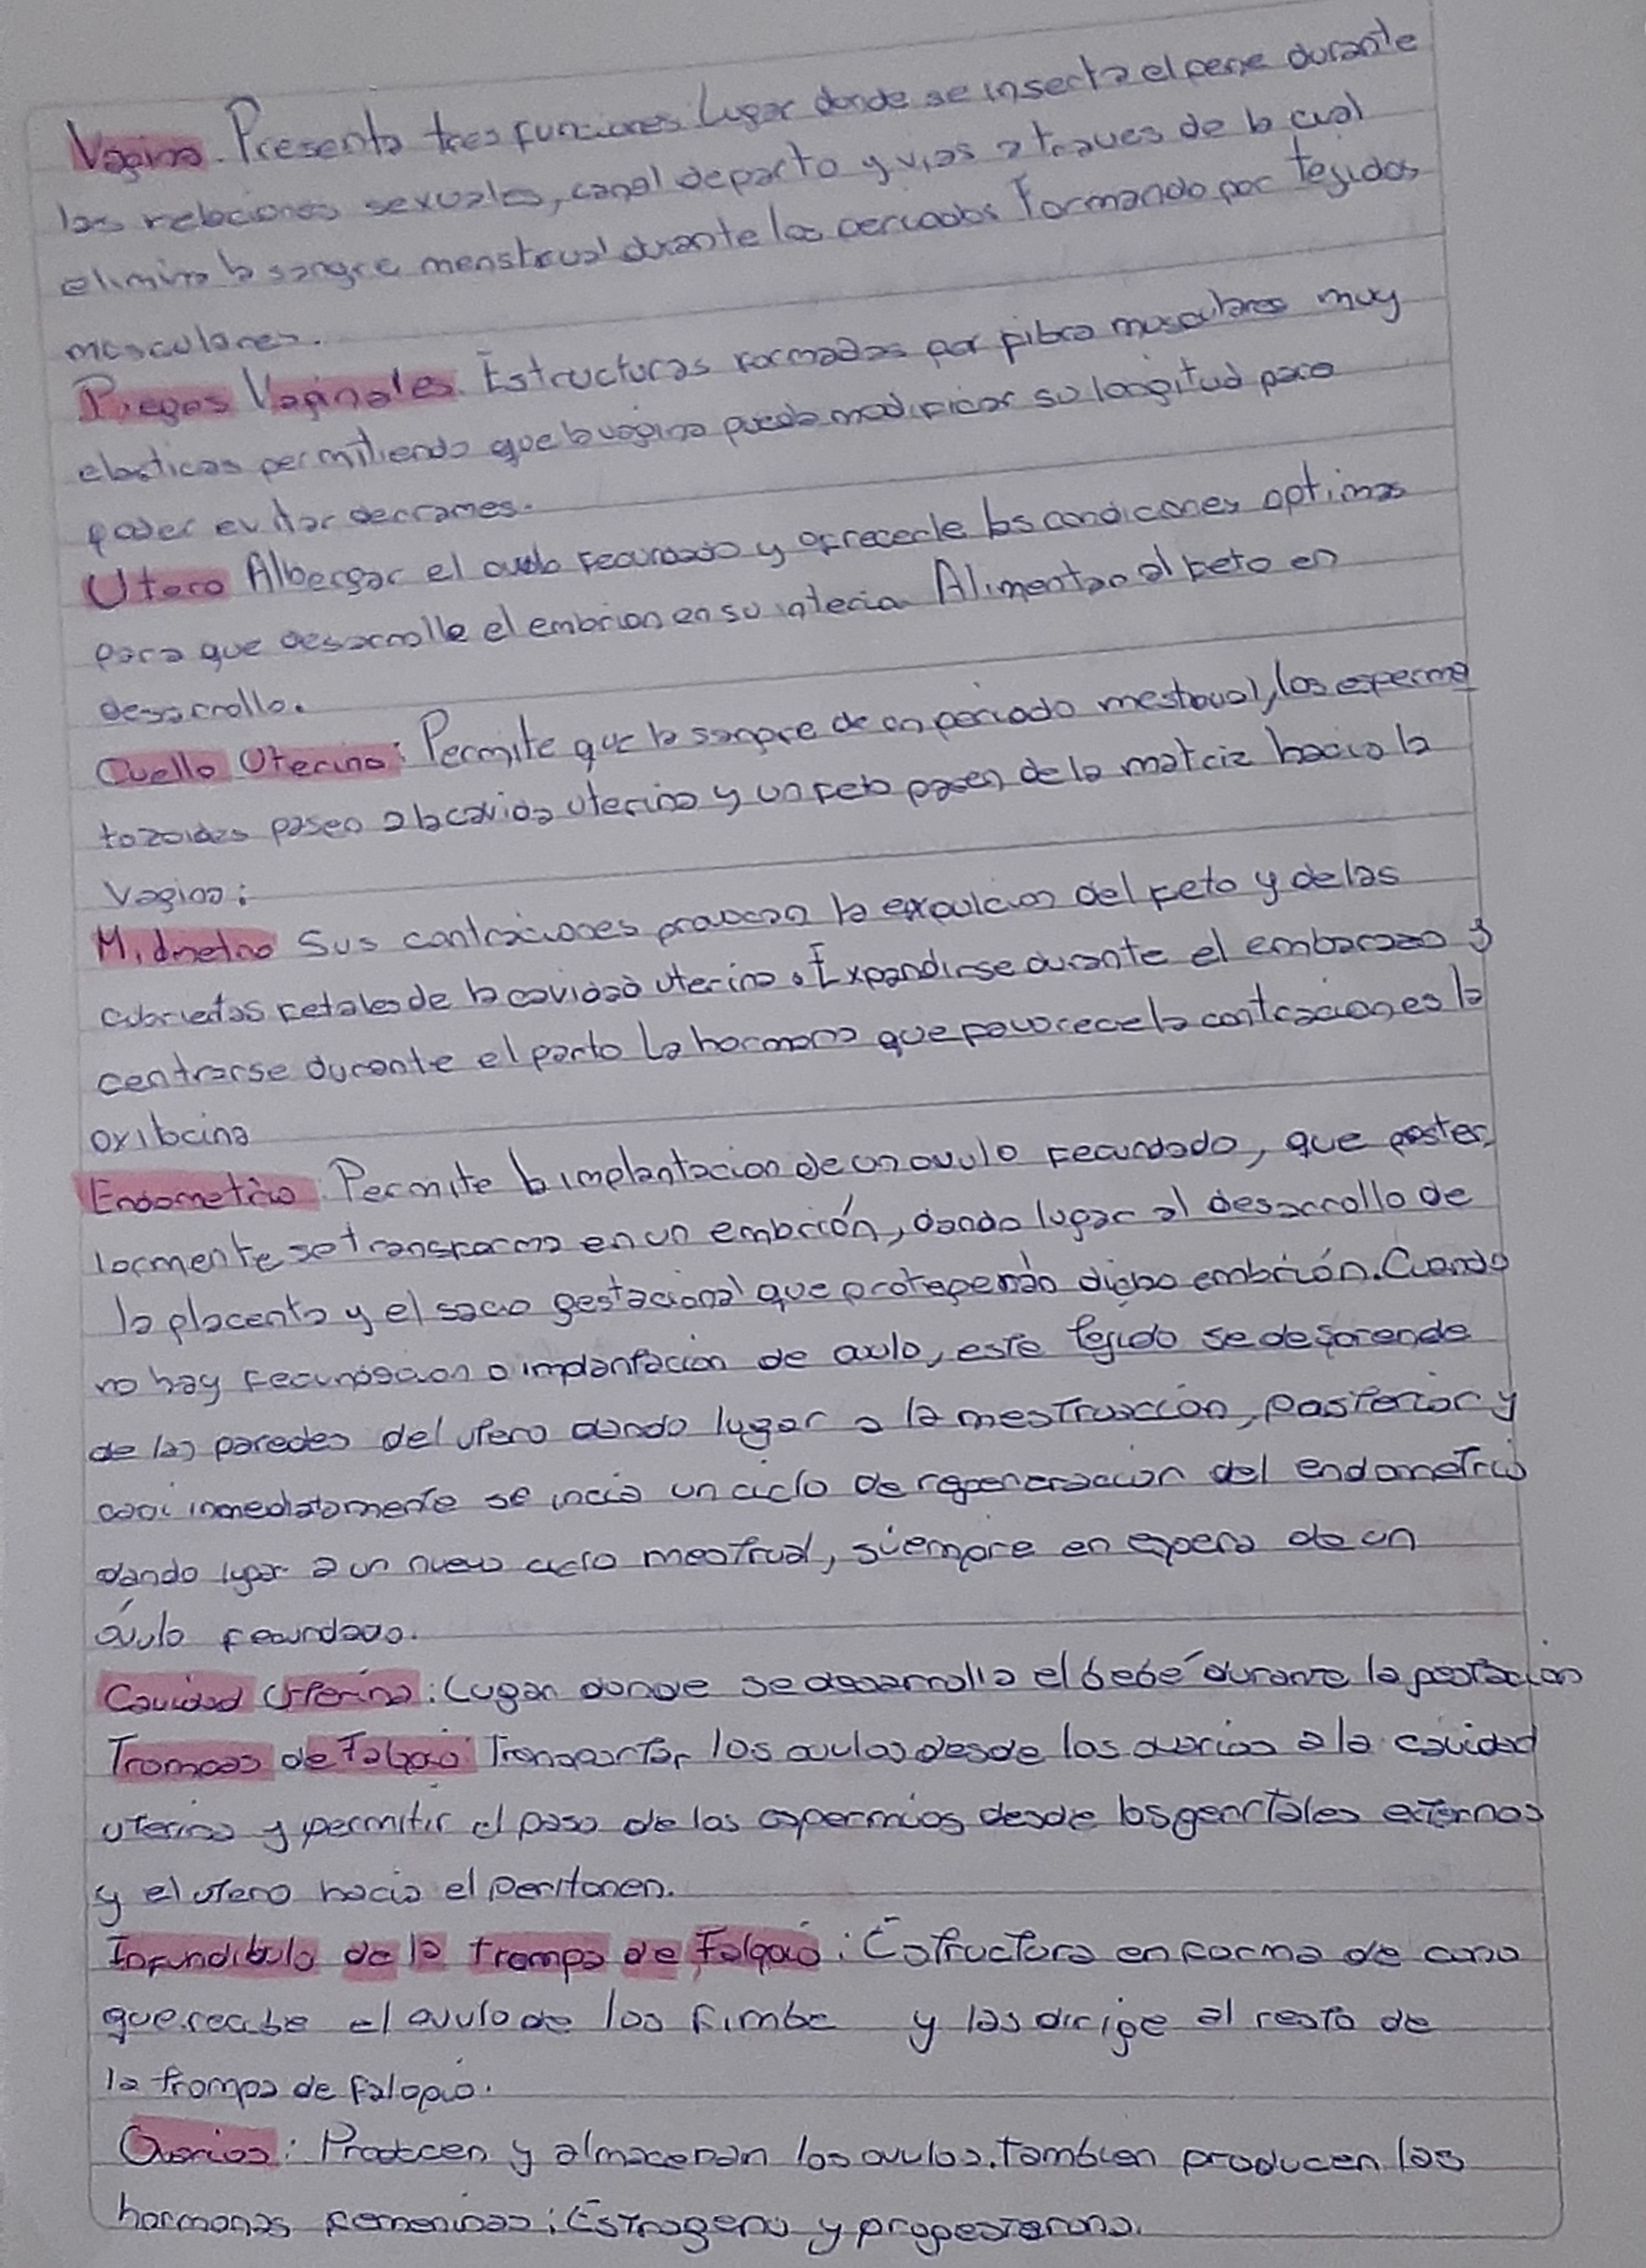 Vagina. Presenta tres funciones lugar donde se inserta el pene durante
las relaciones sexuales, canal de parto y vias a traves de la cual
elimina la sangre menstrual durante los periodos Formando por tejidos
musculares.
Pliegos Vaginales. Estructuras formadas por fibra musculares muy
elasticas permitiendo que la vagina pueda modificar su longitud para
poder evitar derrames.
Utero Albergar el ovulo fecundado y ofrecerle las condiciones optimas
para que desarrolle el embrion en su interia Alimentan al feto en
desarrollo.
Cuello Uterino: Permite que la sangre de un periodo mestrual, los esperma
tozoides pasen a la cavida uterina y un feto pasen de la matriz hacia la
Vagina:
Midmetrio Sus contraciones provocan la expulcion del feto y de las
cubiertas fetales de la cavidad uterina. Expandirse durante el embarazo y
centrarse durante el parto La hormona que favorece la contraciones la
oxitocina
Endometrio: Permite la implantacion de un ovulo fecundado, que poster
iormente se transforma en un embrión, dando lugar al desarrollo de
la placenta y el saco gestacional que protegerán dicho embrión. Cuando
no hay fecundacion o implantación de ovulo, este tejido se desprende
de las paredes del utero dando lugar a la mestruacción, posterior y
casi inmediatamente se incia un ciclo de regeneracción del endometrio
dando lugar a un nuevo ciclo mestrual, siempre en espera de un
óvulo fecundado.
Cavidad Uterina: Lugar donde se desarrolla el bebé durante la gestación
Trompas de Falopio Transportar los ovulos desde los ovarios a la cavidad
uterina y permitir el paso de los espermios desde los genitales externos
y el utero hacia el peritonen.
Infundibulo de la trompa de Falopio: Estructura en forma de cono
que recibe el ovulo de las fimbe y las dirige al resto de
la trompa de falopio.
Ovarios: Producen y almacenan los ovulos. tambien producen las
hormonas femeninas: Estrogeno y progesterona.